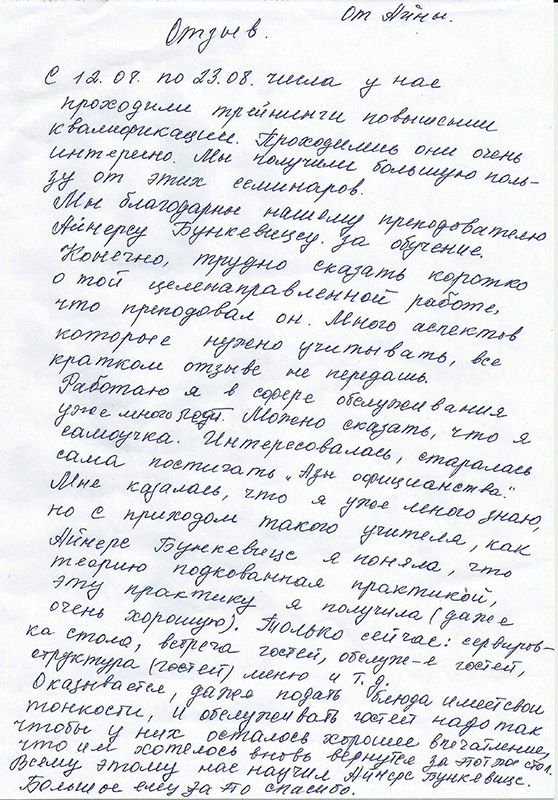 От Айны.
Отзыв.
С 12.07. по 23.08. числа у нас
проходили трейнинги повышении
квалификации. Проходились они очень
интересно. Мы получили большую поль-
зу от этих семинаров.
Мы благодарны нашему преподователю
Айнерсу Бункевицсу за обучение.
Конечно, трудно сказать коротко
о той целенаправленной работе,
что преподовал он. Много аспектов
которые нужно учитывать, все
кратком отзыве не передашь.
Работаю я в сфере обслуживания
уже много годы. Можно сказать, что я
самоучка. Интересовалась, старалась
сама постигать „Азы официанства".
Мне казалась, что я уже много знаю,
но с приходом такого учителя, как
Айнерс Бункевицс я поняла, что
теорию подкованная практикой,
эту практику я получила (даже
очень хорошую). Только сейчас: сервиров-
ка стола, встреча гостей, обслуж-е гостей,
структура (гостей) меню и т.д.
Оказывается, даже подать блюда имеет свои
тонкости, и обслуживать гостей надо так
чтобы у них осталось хорошее впечатление,
что им хотелось вновь вернутся за этот же стол.
Всему этому нас научил Айнерс Бункевицс.
Большое ему за то спасибо.